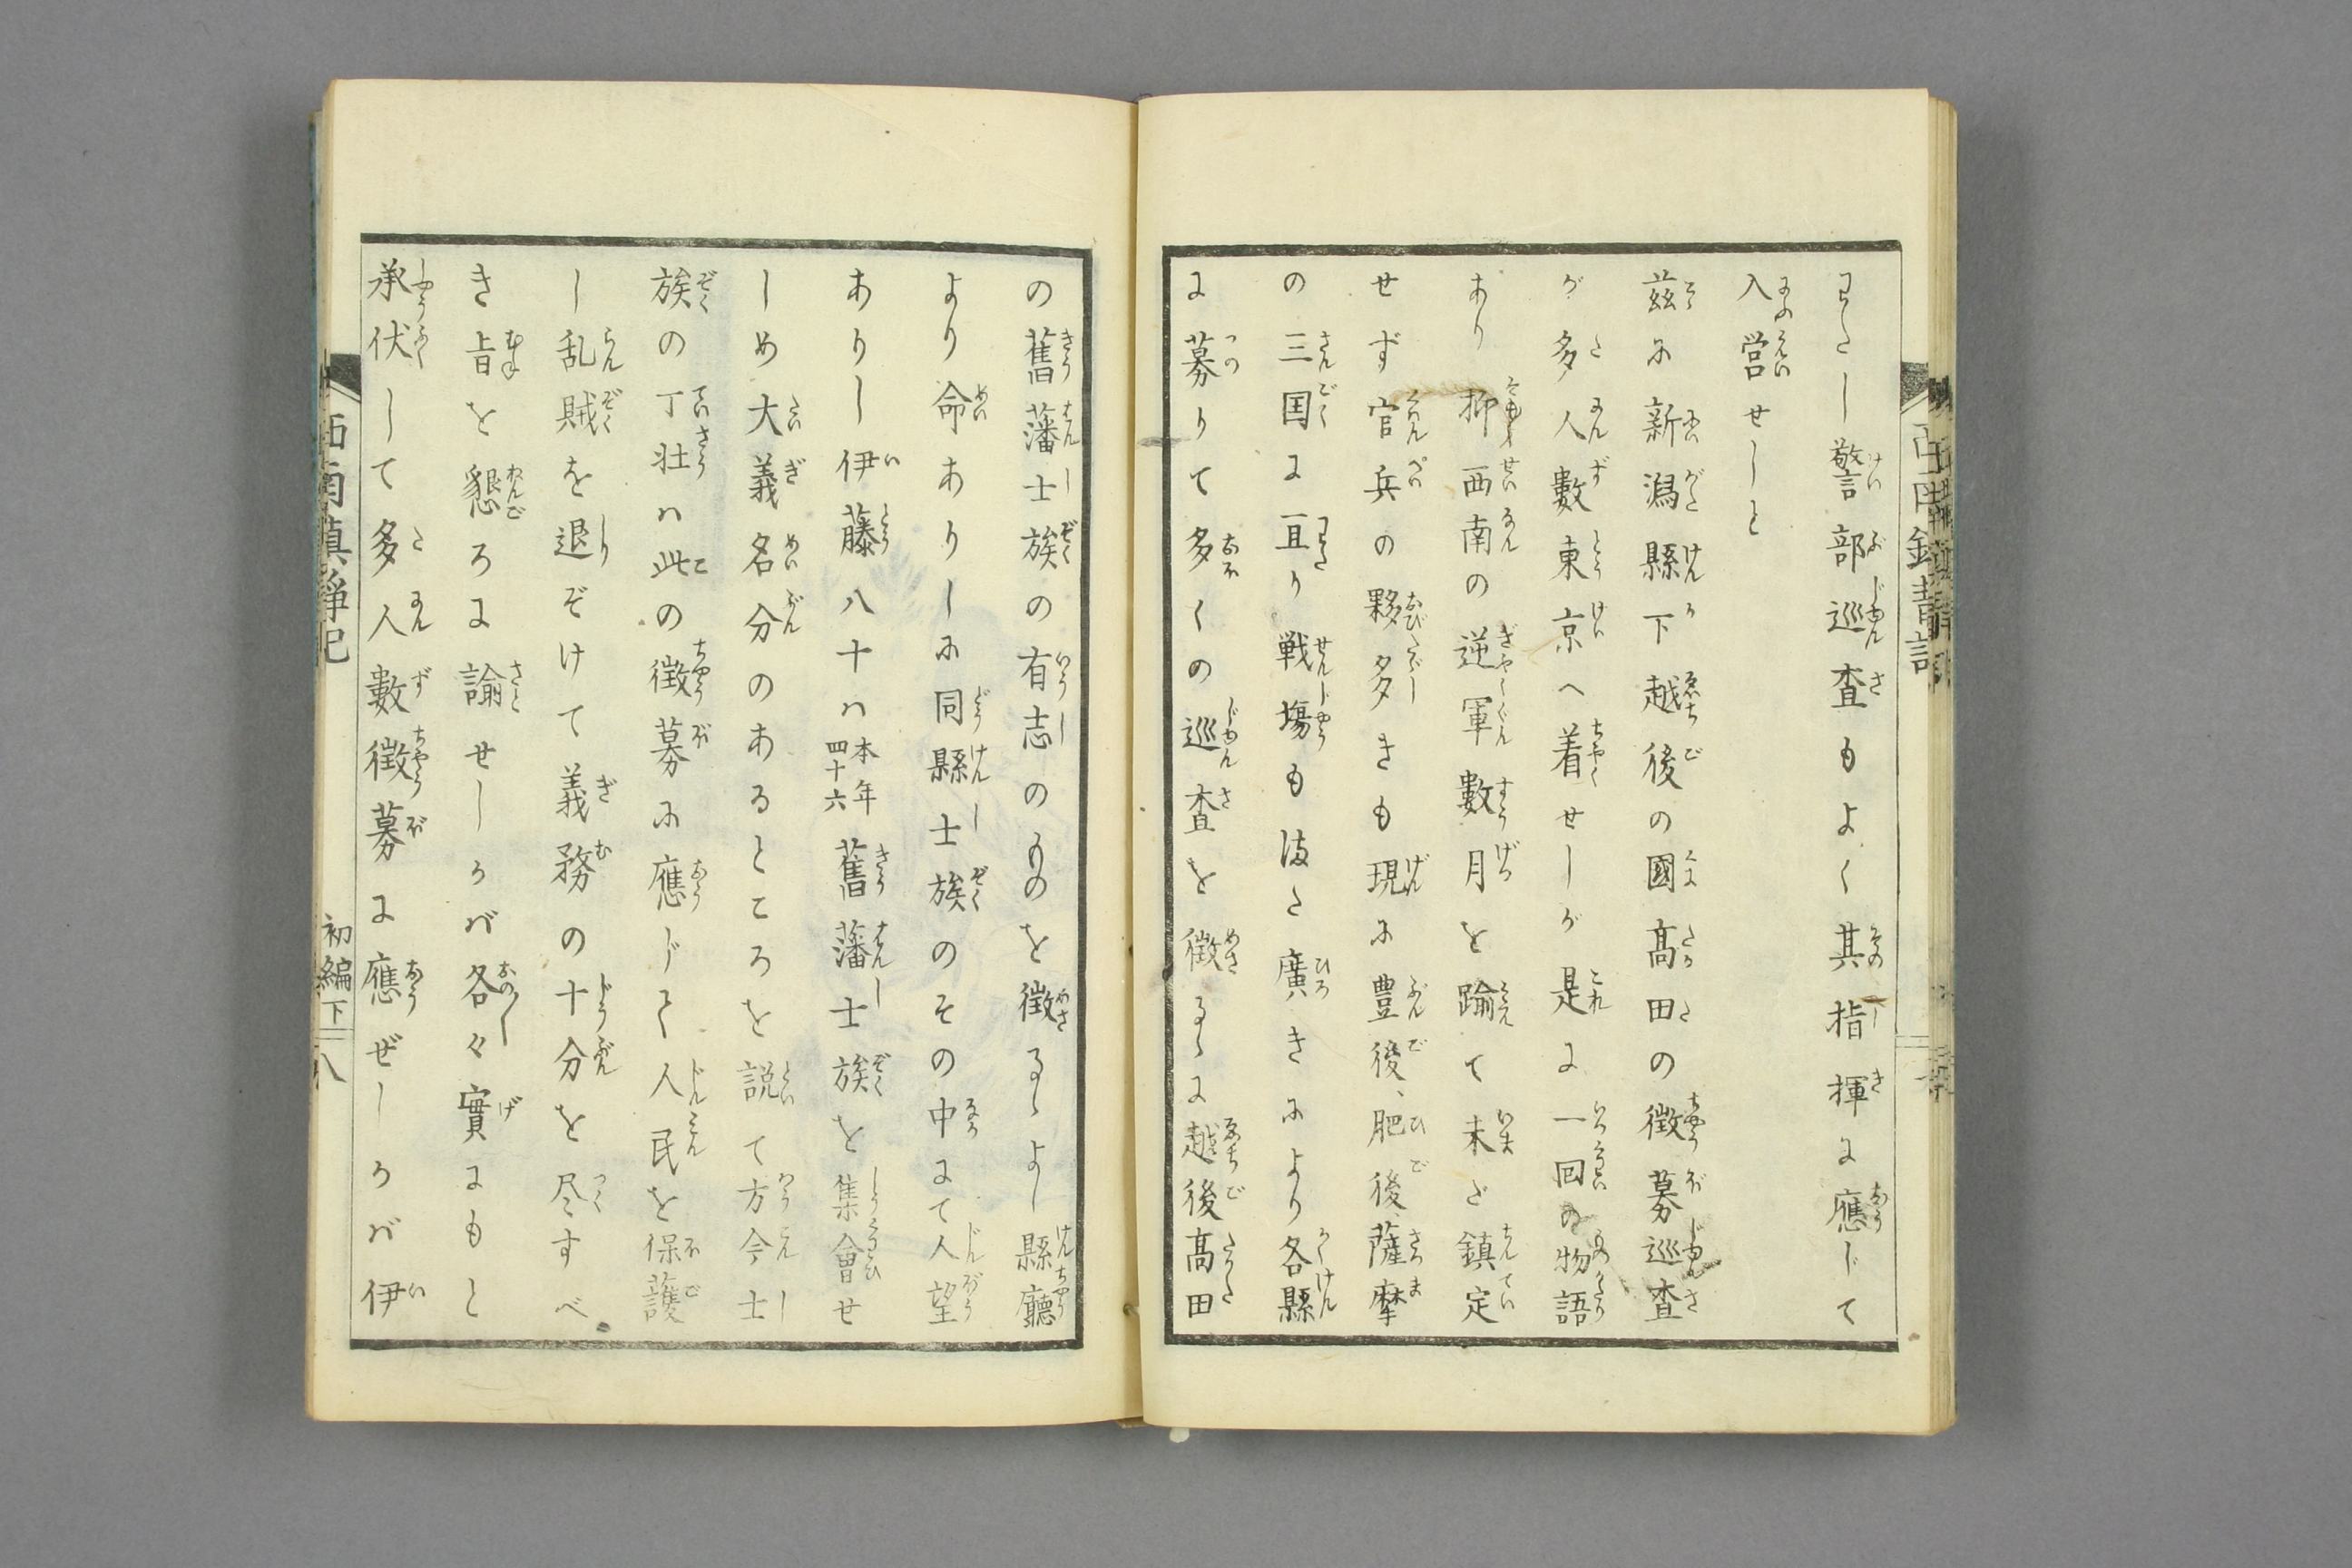 わたし警部巡査もよく其指揮に應じて
入営せしと
茲に新潟縣下越後の國髙田の徴募巡査
が多人數東京へ着せしが是に一回の物語
あり抑西南の逆軍數月を踰て未だ鎮定
せず官兵の夥多きも現に豊後、肥後、薩摩
の三国に亘り戦塲もまた廣きにより各縣
に募りて多くの巡査を徴るゝに越後髙田
の舊藩士族の有志のものを徴るゝよし縣廳
より命ありしに同縣士族のその中にて人望
ありし伊藤八十ハ本年四十六舊藩士族を集會せ
しめ大義名分のあるところを説て方今士
族の丁壮ハ此の徴募に應じて人民を保護
し乱賊を退ぞけて義務の十分を尽すべ
き旨を懇ろに諭せしかバ各々實にもと
承伏して多人數徴募に應ぜしかバ伊
西南鎮静記
初編下
八